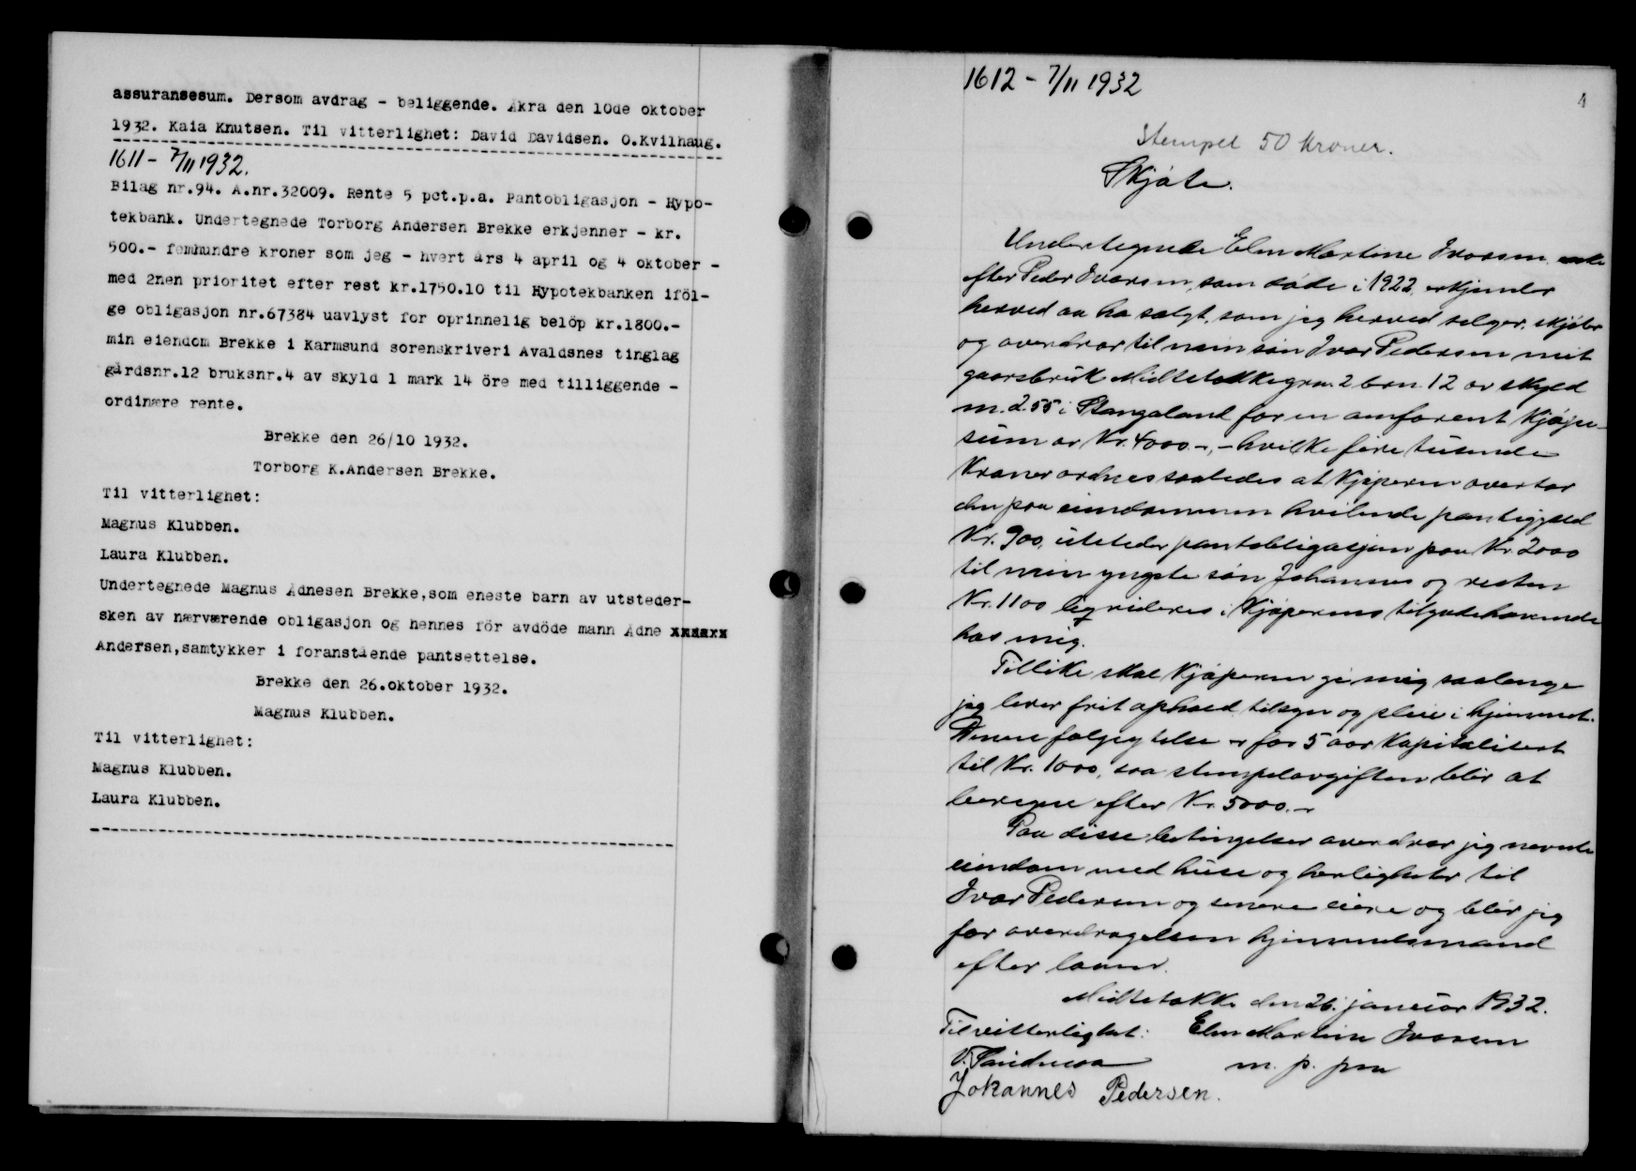 assuransesum. Dersom avdrag - beliggende. Åkra den 10de oktober
1932. Kaia Knutsen. Til vitterlighet: David Davidsen. O.Kvilhaug.
1611 - 7/11 1932.
Bilag nr.94. A.nr.32009. Rente 5 pct.p.a. Pantobligasjon - Hypo-
tekbank. Undertegnede Torborg Andersen Brekke erkjenner - kr.
500.- femhundre kroner som jeg - hvert års 4 april og 4 oktober -
med 2nen prioritet efter rest kr.1750.10 til Hypotekbanken iföl-
ge obligasjon nr.67384 uavlyst for oprinnelig belöp kr.1800.-
min eiendom Brekke i Karmsund sorenskriveri Avaldsnes tinglag
gårdsnr.12 bruksnr.4 av skyld 1 mark 14 öre med tilliggende -
ordinære rente.
Brekke den 26/10 1932.
Torborg K.Andersen Brekke.
Til vitterlighet:
Magnus Klubben.
Laura Klubben.
Undertegnede Magnus Ådnesen Brekke,som eneste barn av utsteder-
sken av nærværende obligasjon og hennes för avdöde mann Ådne xxxxxx
Andersen,samtykker i foranstående pantsettelse.
Brekke den 26.oktober 1932.
Magnus Klubben.
Til vitterlighet:
Magnus Klubben.
Laura Klubben.
1612 - 7/11 1932
Stempel 50 kroner.
Skjöte.
Undertegnede Elen Martine Ivarsen, enke
efter Peder Ivarsen, som döde i 1922, erkjender
herved aa ha solgt, som jeg herved selger, skjöter
og overdrar til min sön Ivar Pedersen mit
gaardsbruk Midtstokke grn. 2 brn. 12 av skyld
m. 2.55 i Stangaland for en omforent kjöpe-
sum av Kr. 4000.-, - hvilke fire tusende
Kroner ordnes saaledes at kjöperen overtar
den paa eiendommen hvilende pantegjæld
Kr. 900, utsteder pantobligasjon paa Kr. 2000
til min yngste sön Johannes og resten
Kr. 1100 ligvideres i kjöperens tilgodehavende
hos mig.
Tillike skal kjöperen gi mig saalenge
jeg lever frit ophold, tilsyn og pleie i hjemmet.
Denne fölgeytelse er for 5 aar kapitalisert
til Kr. 1000, saa stempelavgiften blir at
beregne efter Kr. 5000.-
Paa disse betingelser overdrar jeg nevnte
eiendom med huse og herligheter til
Ivar Pedersen og senere eiere og blir jeg
for overdragelsen hjemmelsmand
efter loven.
Midtstokke den 26. januar 1932.
Til vitterlighet: Elen Martine Ivarsen
m. p. pen
Johannes Pedersen.